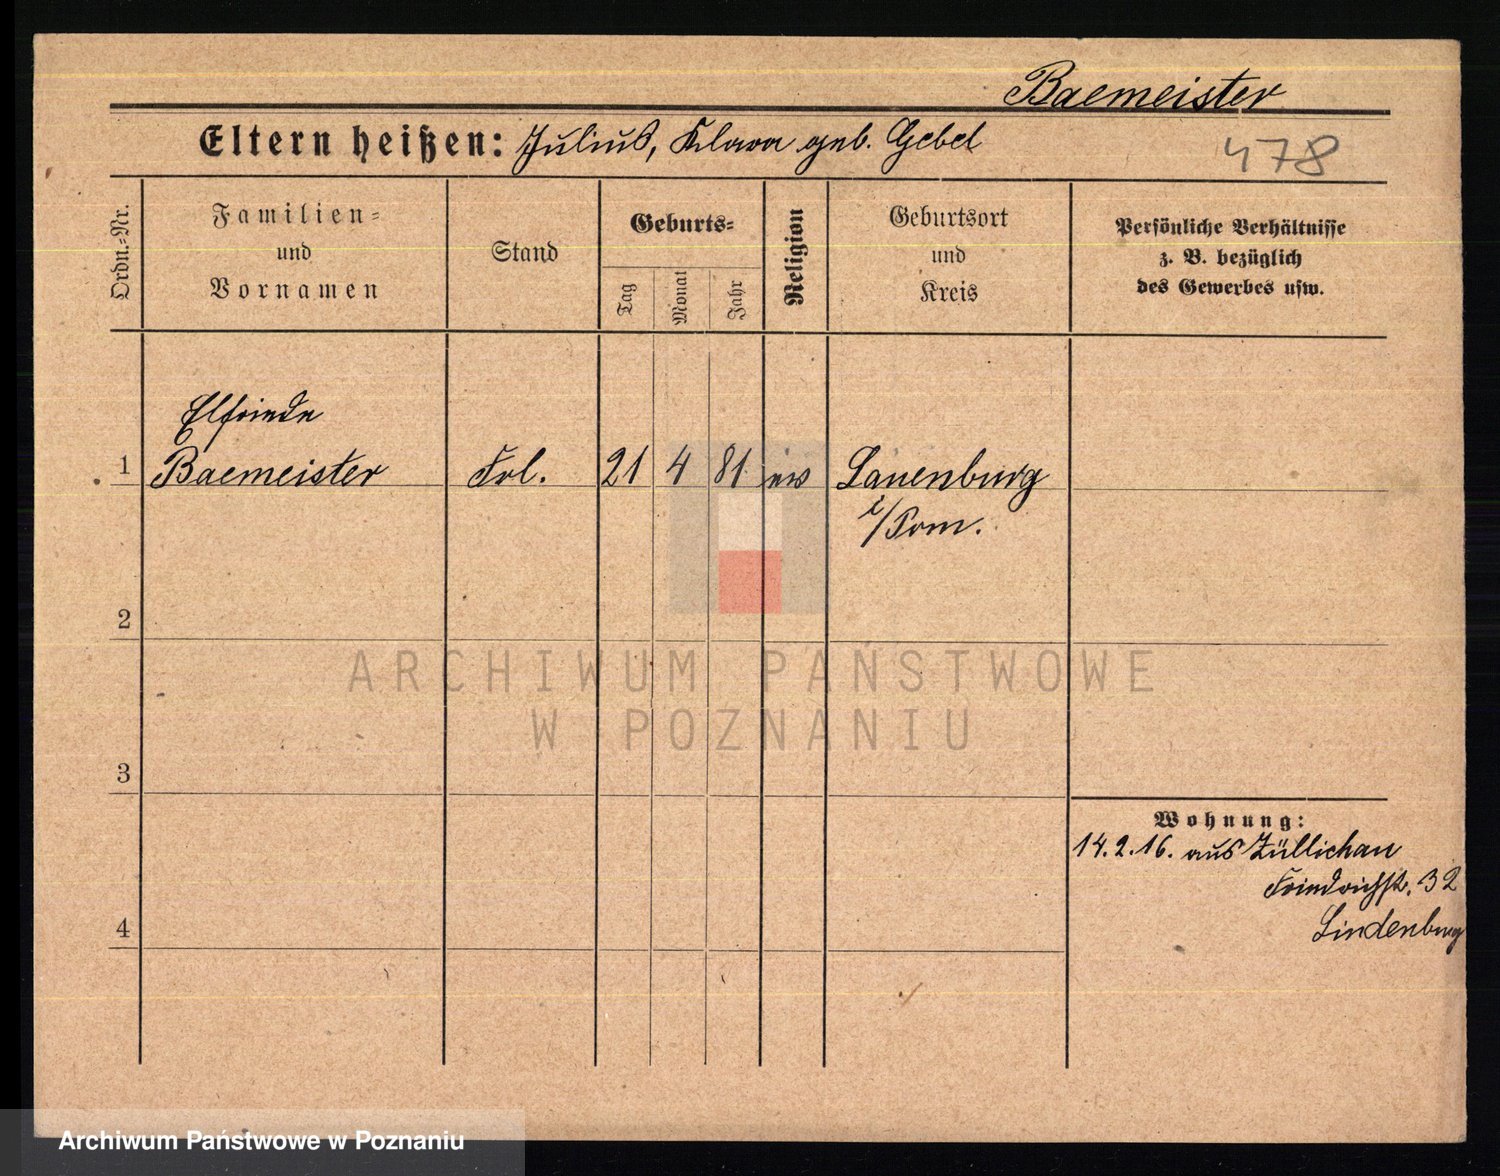 Baemeister
Eltern heißen: Julius, Klara geb. Gebel
478
Ordn.-Nr.
Familien-
und
Vornamen
Stand
Geburts-
Tag
Monat
Jahr
Religion
Geburtsort
und
Kreis
Persönliche Verhältnisse
z. B. bezüglich
des Gewerbes usw.
Elfriede
1 Baemeister Frl. 21 4 81 ev Lauenburg
i/Pom.
2
3
4
Wohnung:
14.2.16. aus Züllichau
Friedrichst. 32
Lindenburg
ARCHIWUM PAŃSTWOWE
W POZNANIU
Archiwum Państwowe w Poznaniu